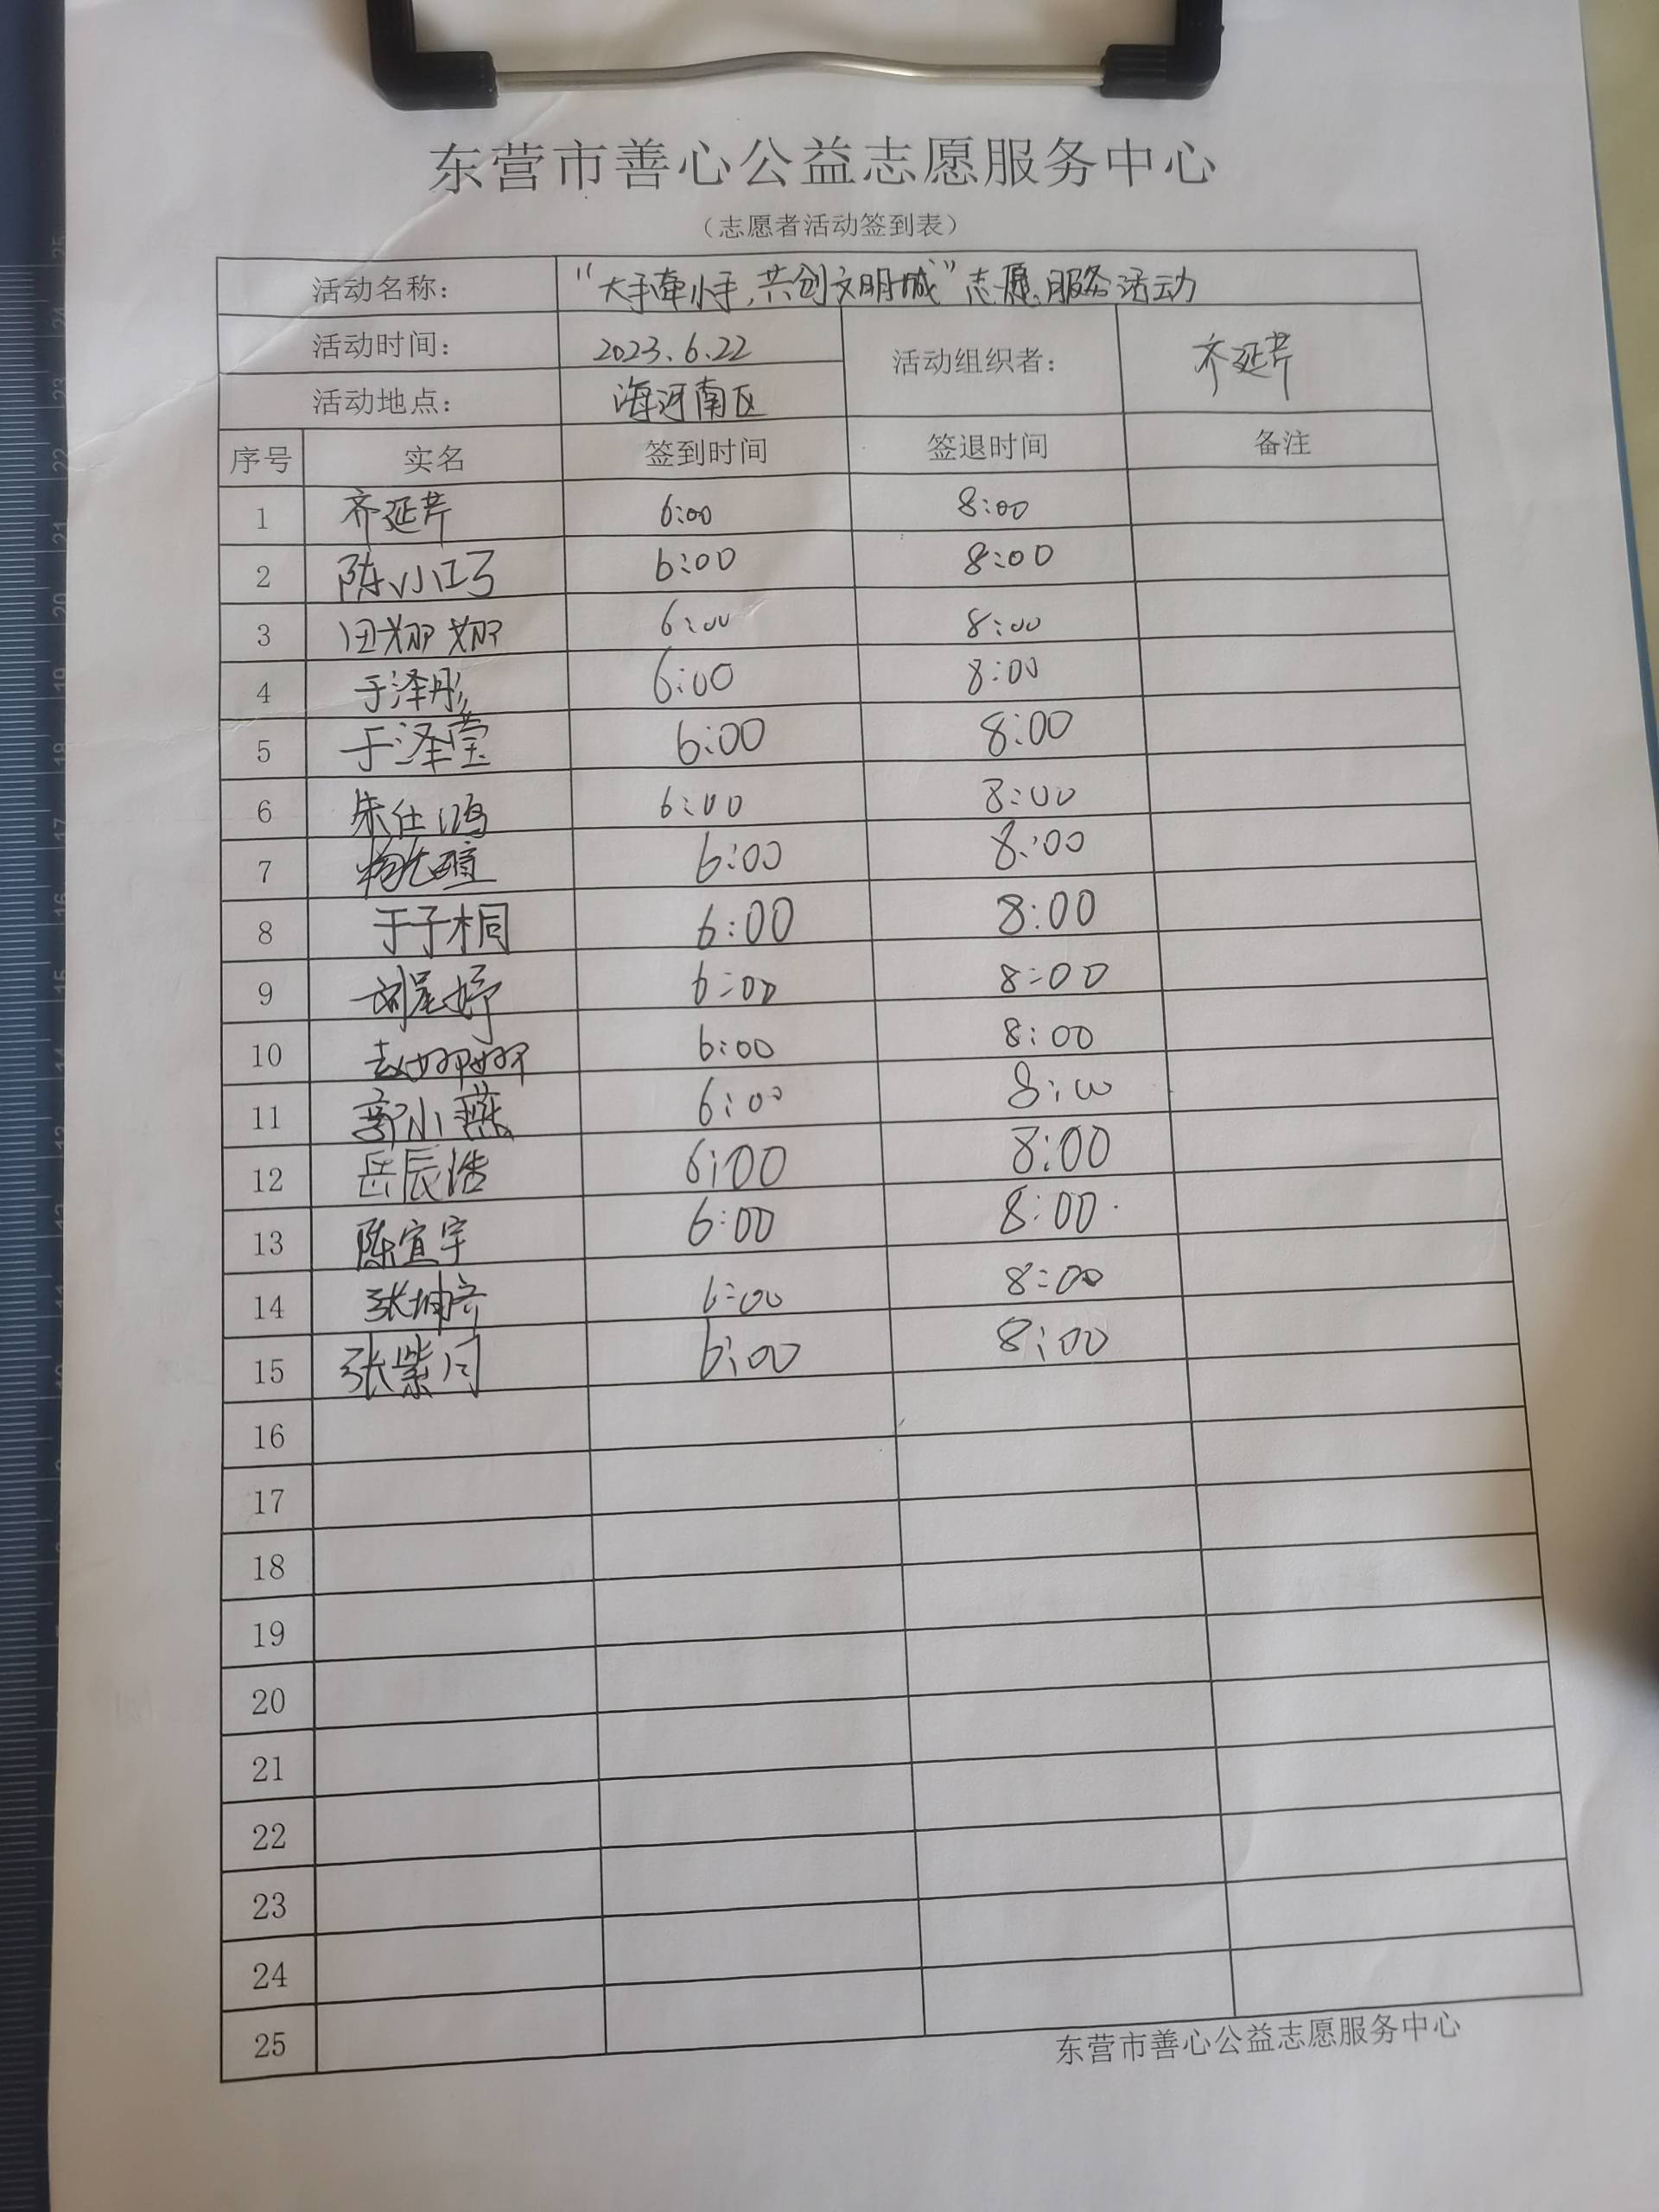 东营市善心公益志愿服务中心
（志愿者活动签到表）
活动名称： “大手牵小手，共创文明城”志愿服务活动
活动时间： 2023.6.22 活动组织者： 齐延芹
活动地点： 海河南区
序号 实名 签到时间 签退时间 备注
1 齐延芹 6:00 8:00
2 陈小巧 6:00 8:00
3 田翔翔 6:00 8:00
4 于泽彤 6:00 8:00
5 于泽莹 6:00 8:00
6 朱仕鸿 6:00 8:00
7 6:00 8:00
8 于子桐 6:00 8:00
9 胡星妤 6:00 8:00
10 赵娜娜 6:00 8:00
11 郭小燕 6:00 8:00
12 岳辰浩 6:00 8:00
13 陈宣宇 6:00 8:00
14 张坤齐 6:00 8:00
15 张紫月 6:00 8:00
16
17
18
19
20
21
22
23
24
25
东营市善心公益志愿服务中心